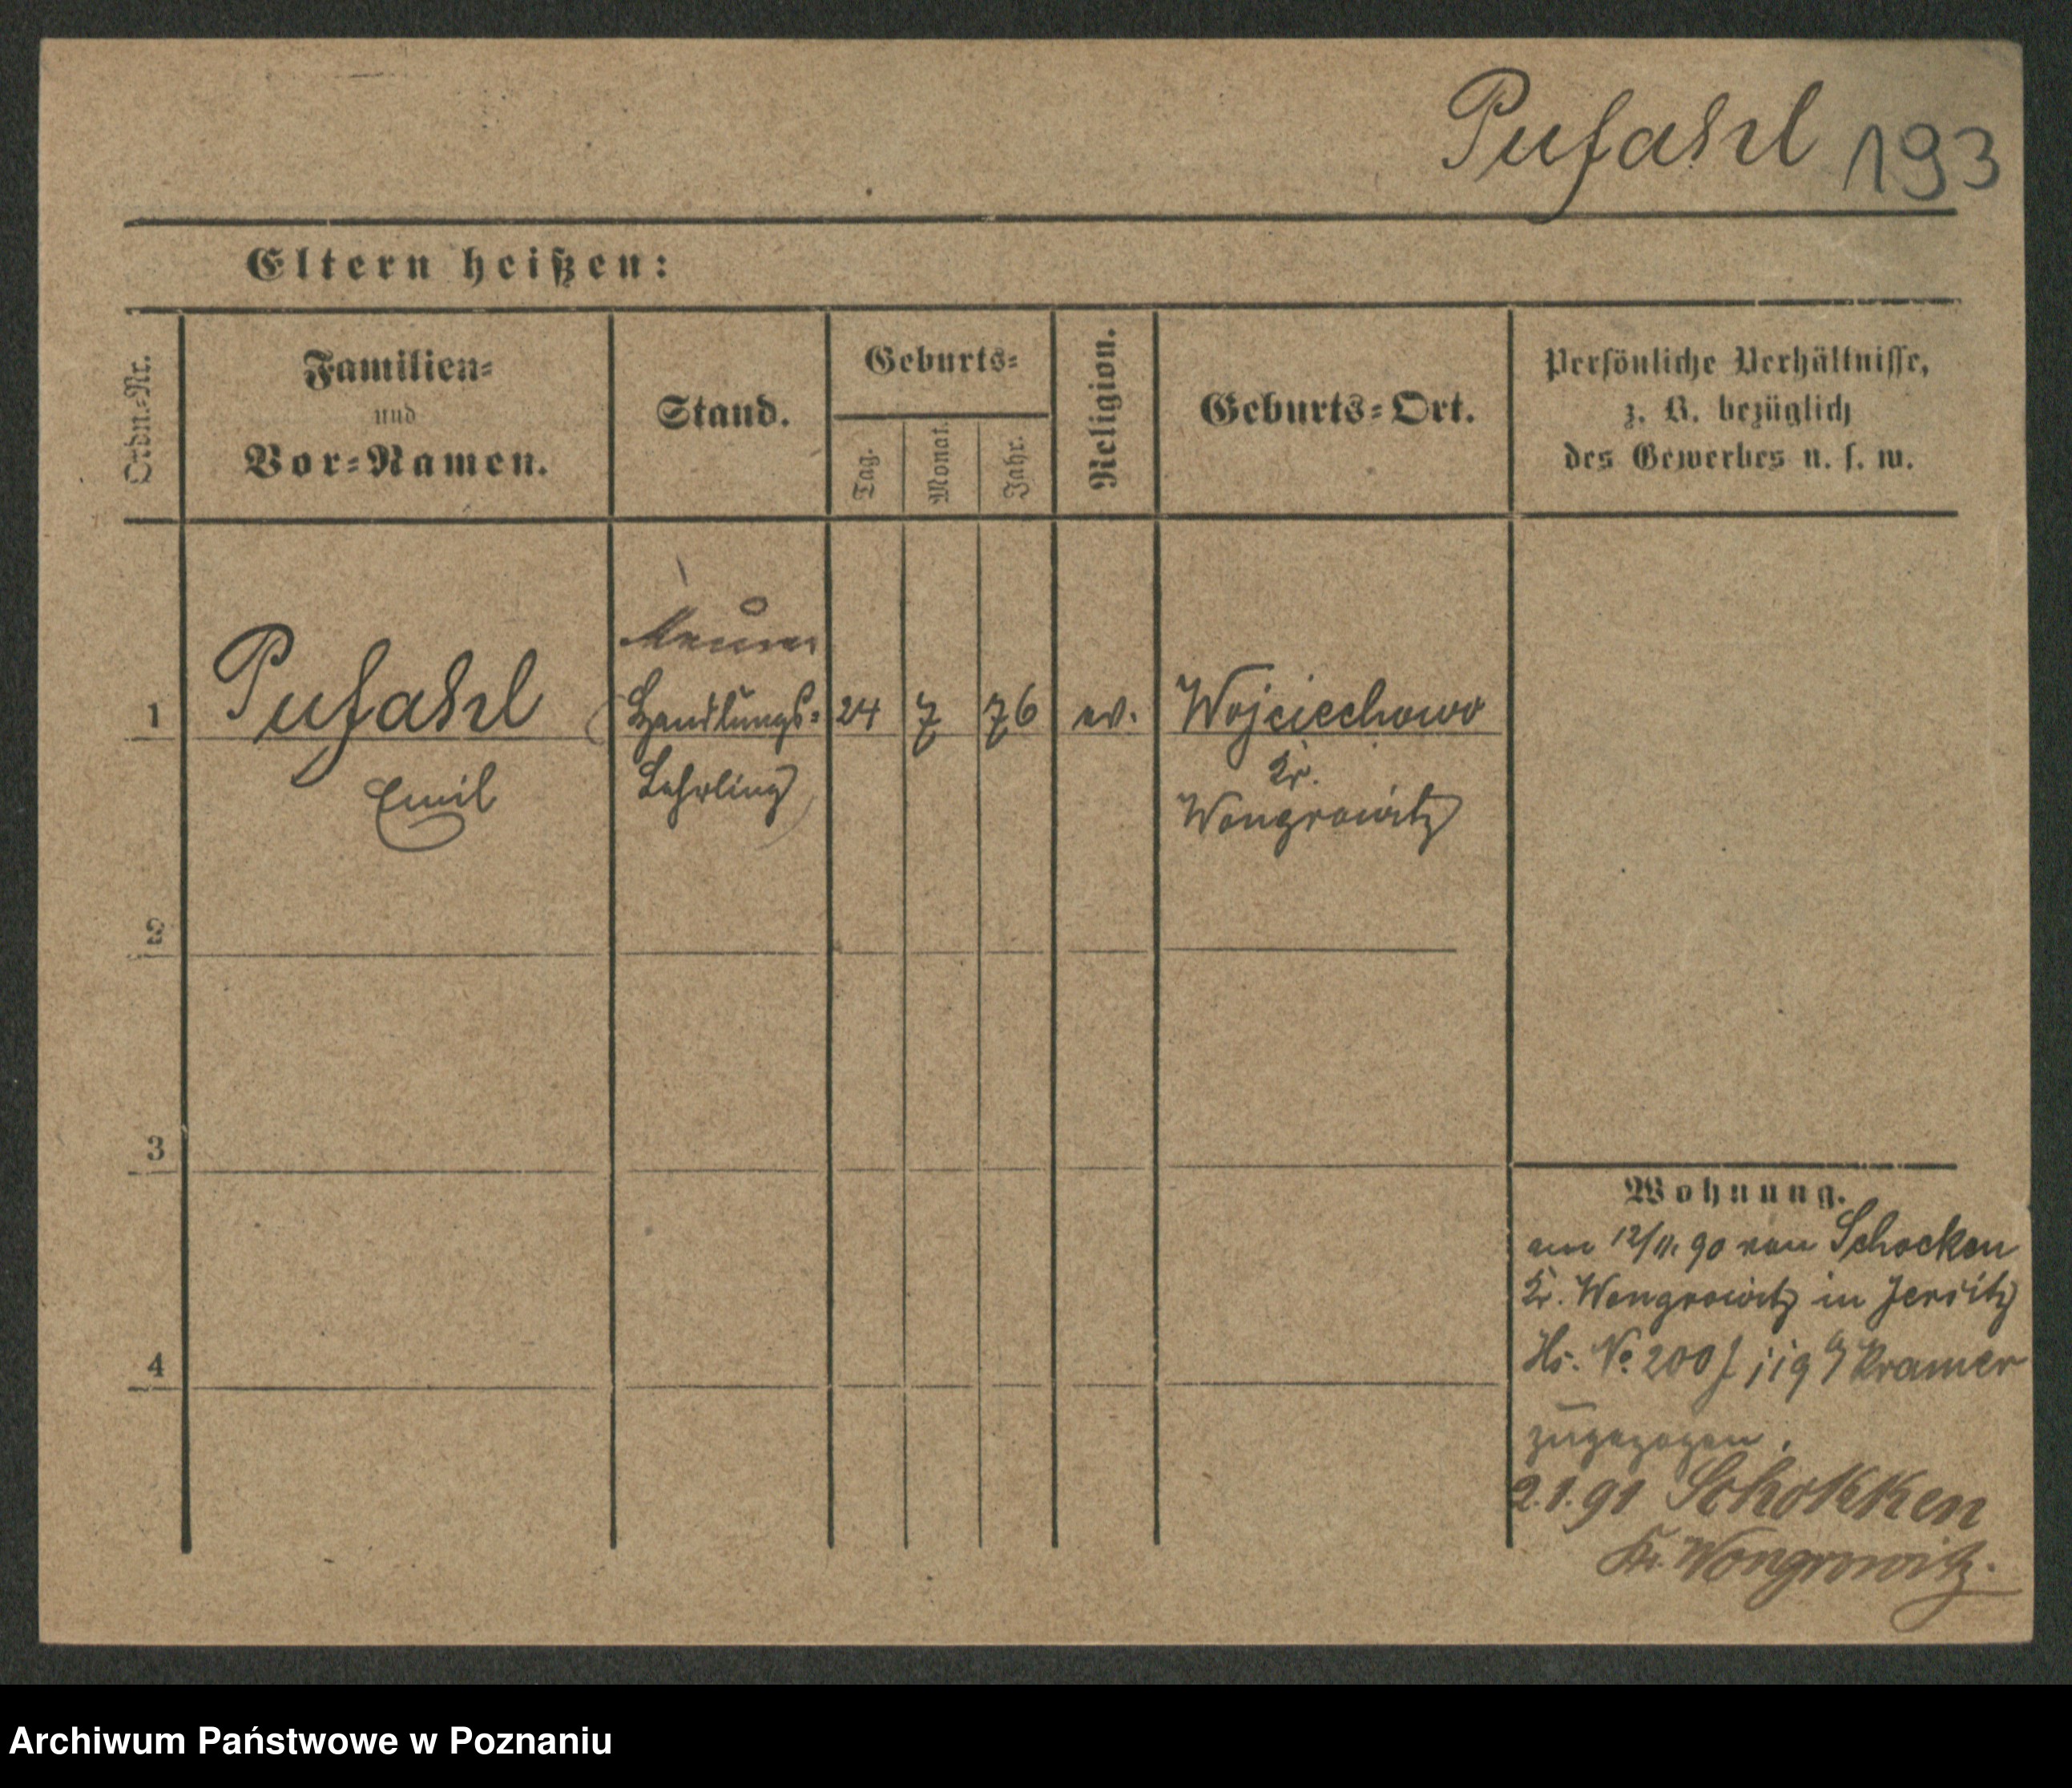 Pufahl 193
Eltern heißen:
Ordn.-Nr.
Familien-
und
Vor-Namen.
Stand.
Geburts-
Tag.
Monat.
Jahr.
Religion.
Geburts-Ort.
Persönliche Verhältnisse,
z. B. bezüglich
des Gewerbes u. s. w.
1 Pufahl Handlungs- 24 7 76 ev. Wojciechowo
Emil Lehrling Kr.
Wongrowitz
2
3
4
Wohnung.
am 12/11. 90 von Schocken
Kr. Wongrowitz in Jersitz
Hs. No 200 Kramer
zugezogen.
2.1.91 Schokken
Kr. Wongrowitz.
Archiwum Państwowe w Poznaniu